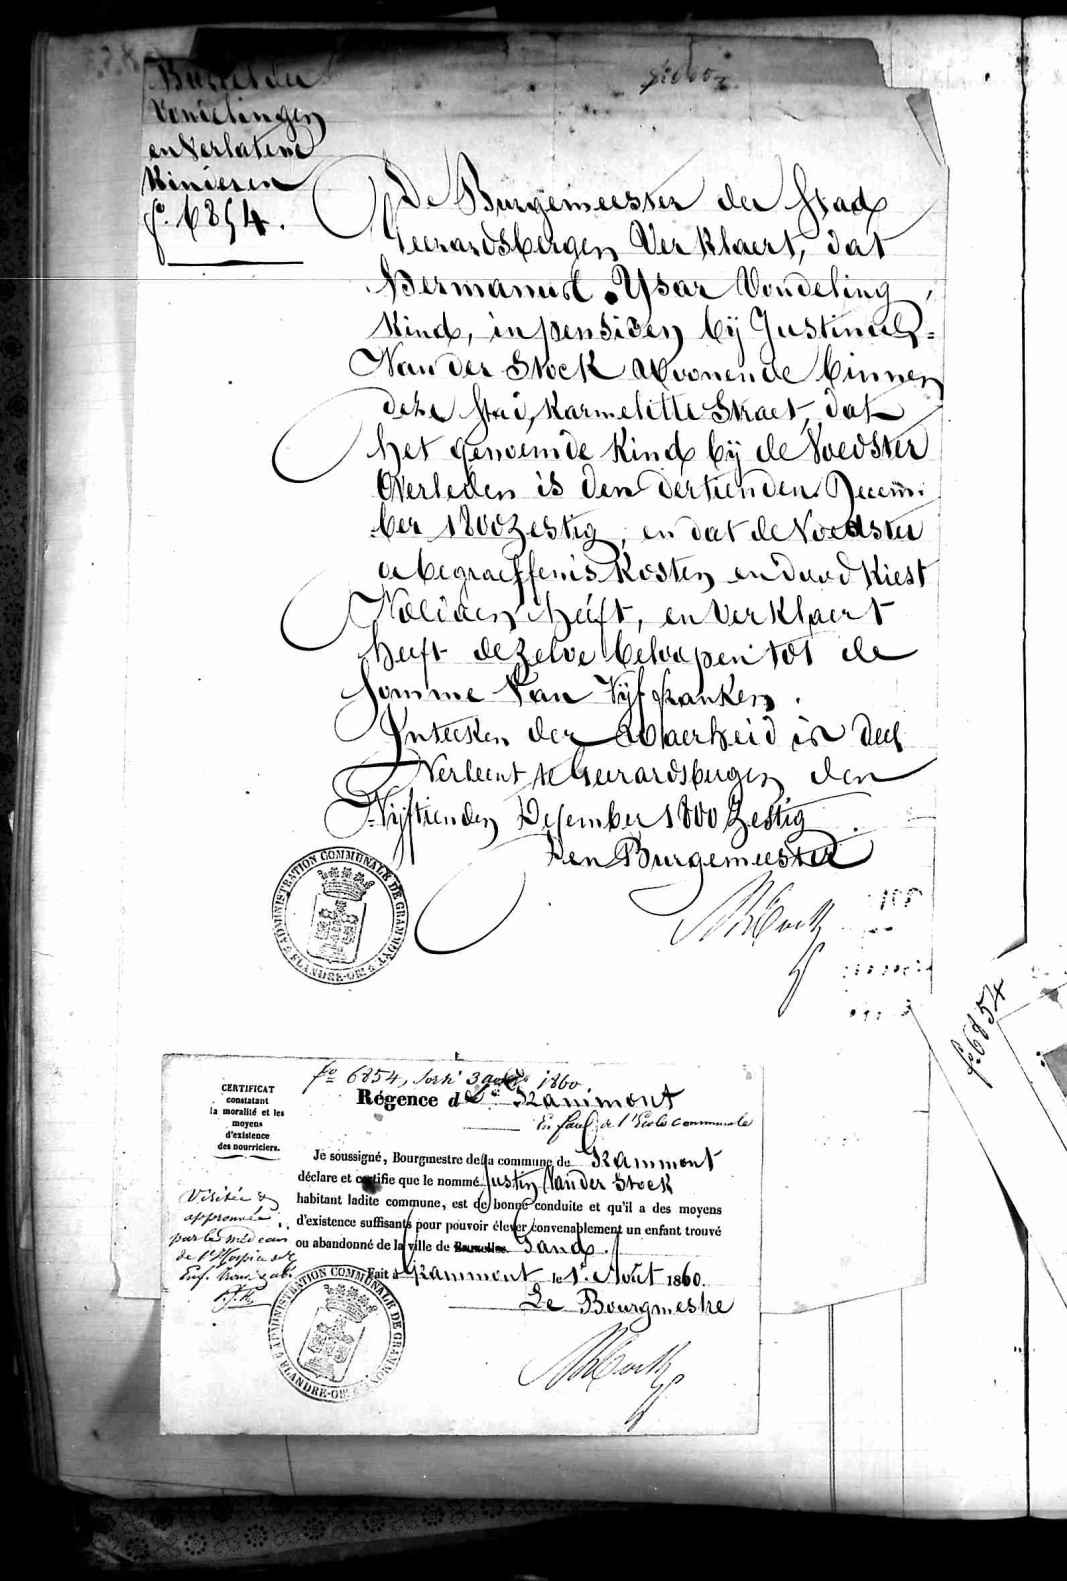 Vondelingen
en Verlatene
Kinderen
fo. 6854.
De Burgemeester der Stad
Geerardsbergen Verklaert, dat
Hermanus Ysar Vondeling,
Kind, in pensioen bij Justinus
Van der Stock Woonende binnen
deze Stad, Karmelitte Straet, dat
het genoemde Kind bij de Voedster
Overleden is den dertienden Decem:
ber 1800 zestig, en dat de Voedster
de begraeffenis Kosten en dood Kiest
heeft, en Verklaert
heeft dezelve beloopen tot de
Somme Van Vijf franken.
In teeken der Waerheid is dees
Verleent te Geerardsbergen den
Vijftienden December 1800 Zestig
Den Burgemeester
ADMINISTRATION COMMUNALE DE GRAMMONT
FLANDRE-OR.
fo 6854
fo 6854, Sorti 3 août 1860.
CERTIFICAT
constatant
la moralité et les
moyens
d'existence
des nourriciers.
Régence de Grammont
En face de l'Ecole communale
Je soussigné, Bourgmestre de la commune de Grammont
déclare et certifie que le nommé Justin Van der Stock
habitant ladite commune, est de bonne conduite et qu'il a des moyens
d'existence suffisants pour pouvoir élever convenablement un enfant trouvé
ou abandonné de la ville de Bruxelles Gand.
Fait à Grammont le 1r Août 1860.
Le Bourgmestre
Visitée &
approuvée
par le médecin
de l'Hospice de
Enf. trouv. & ab.
ADMINISTRATION COMMUNALE DE GRAMMONT
FLANDRE-OR.